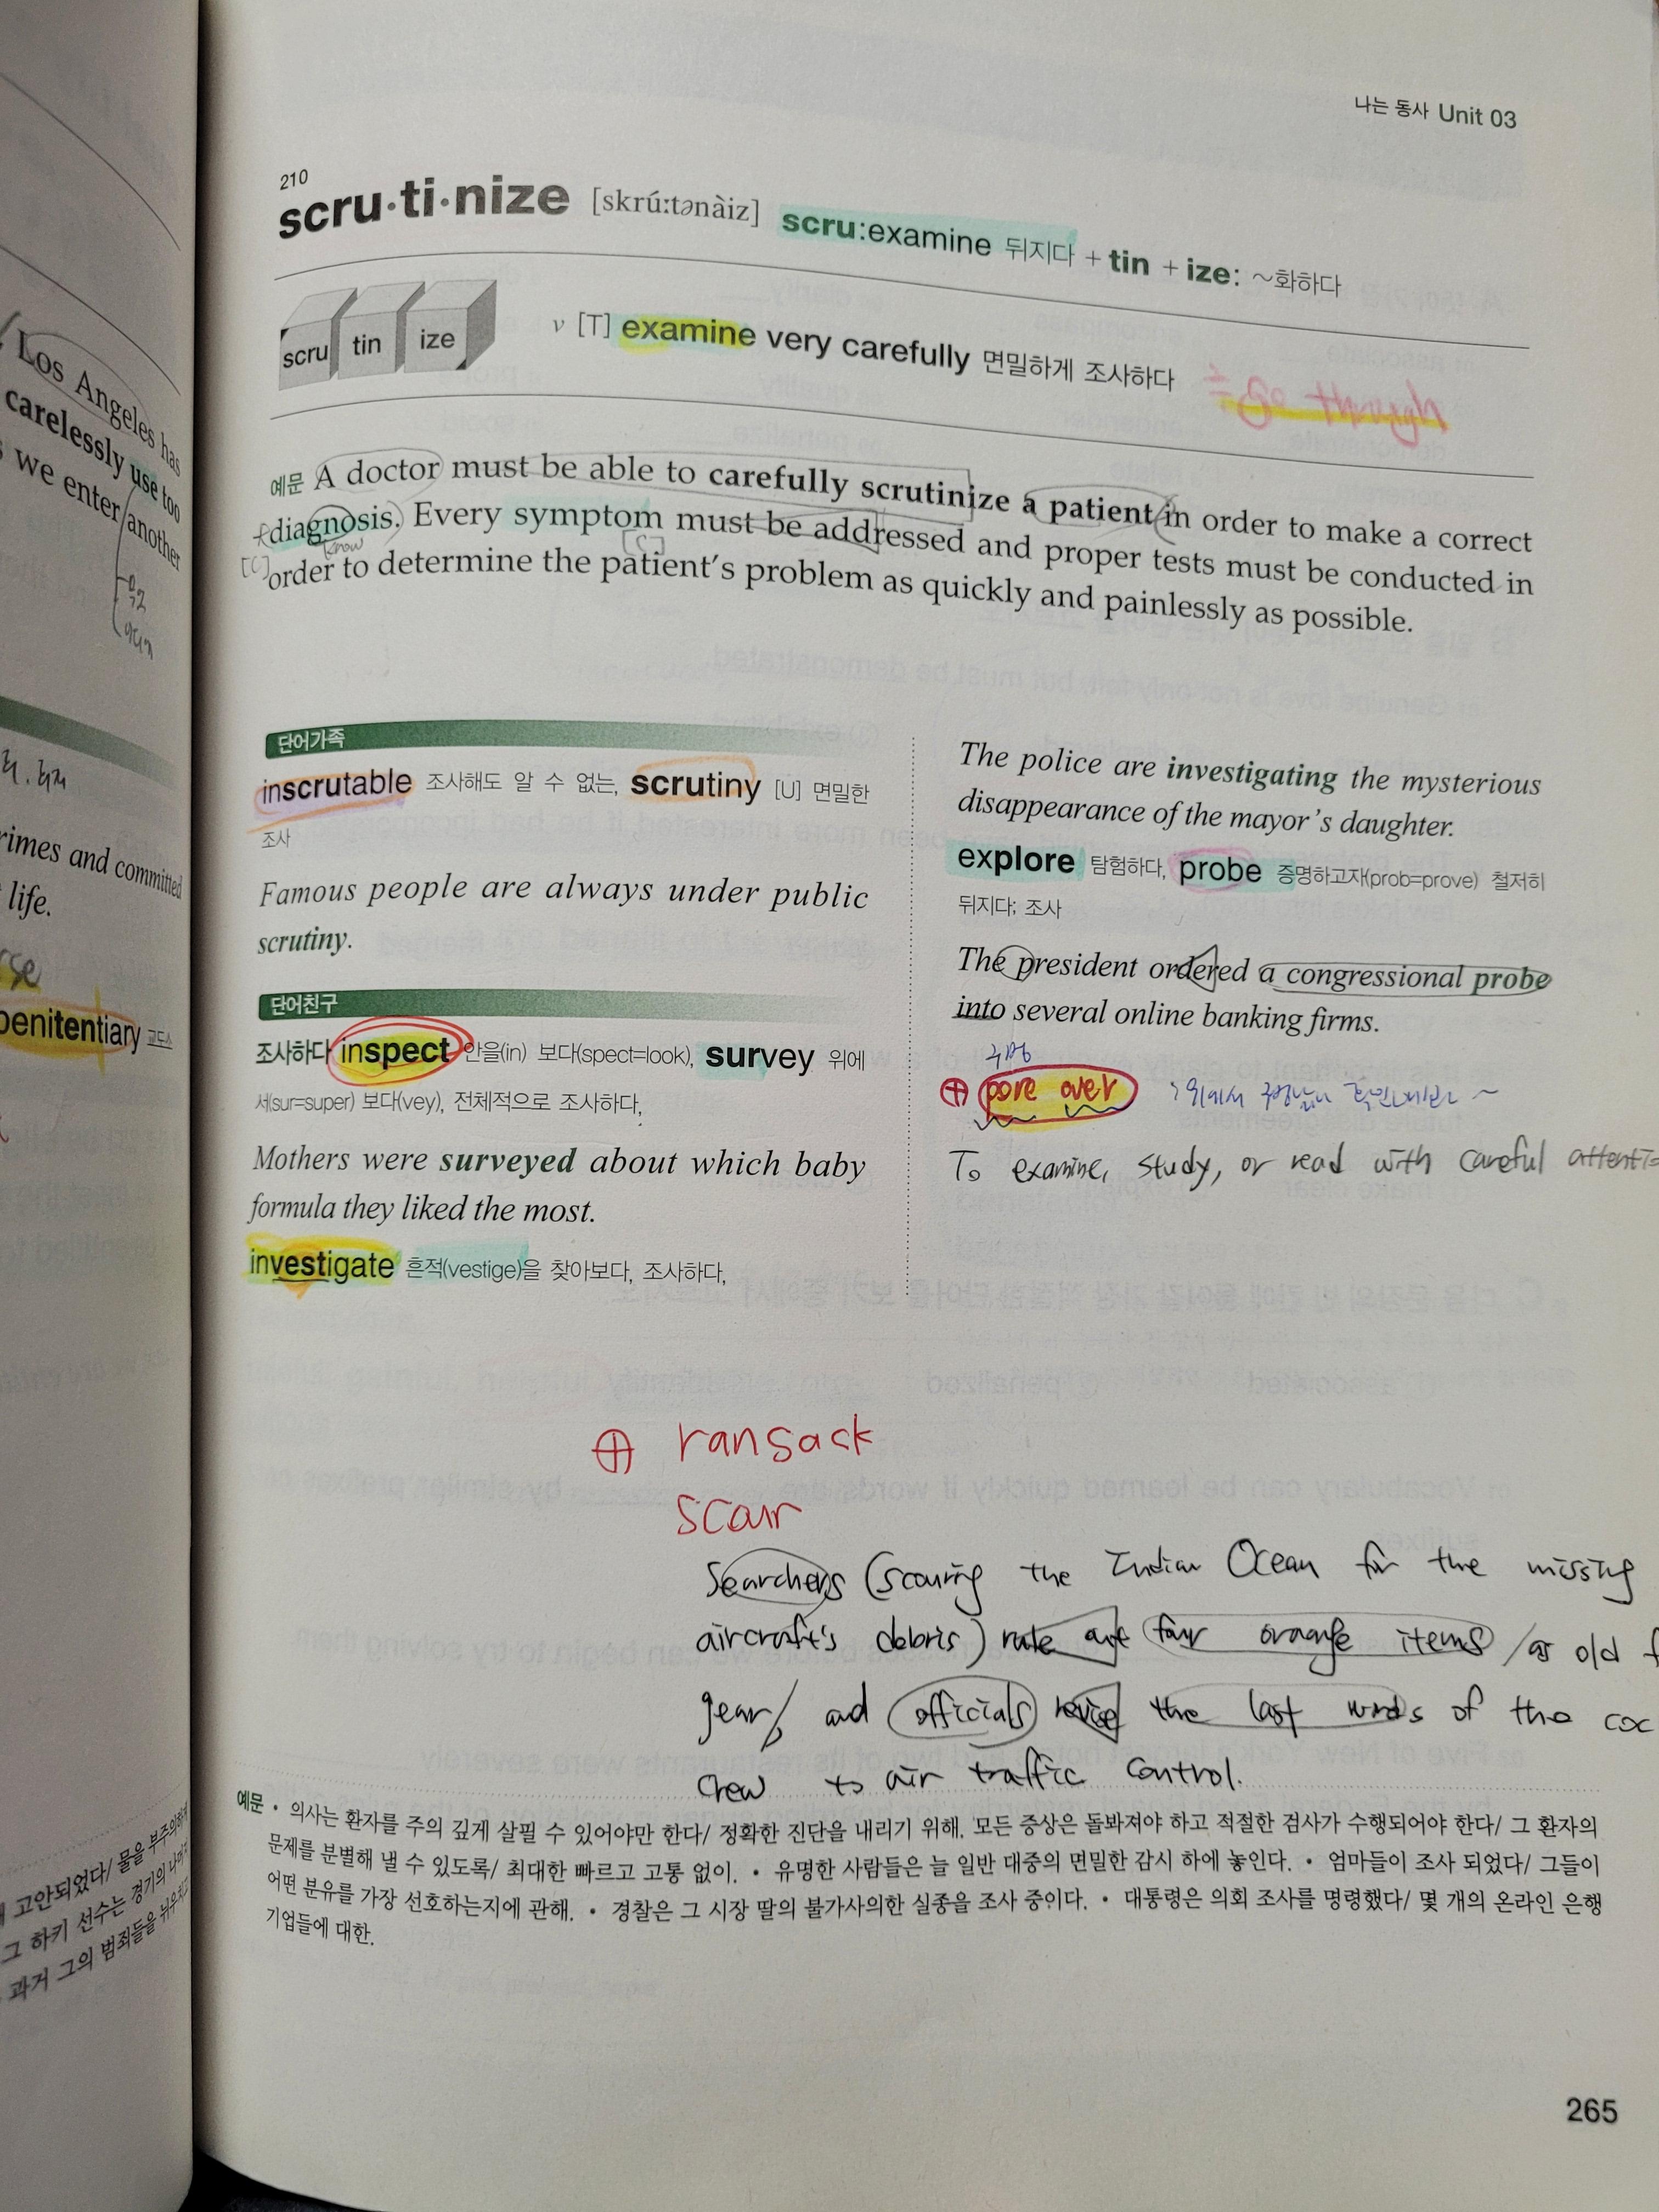 나는 동사 Unit 03
210
scru·ti·nize [skrú:tənàiz] scru:examine 뒤지다 + tin + ize: ~화하다
scru tin ize
v [T] examine very carefully 면밀하게 조사하다
= go through
예문 A doctor must be able to carefully scrutinize a patient in order to make a correct
diagnosis. Every symptom must be addressed and proper tests must be conducted in
know [C]
[C] order to determine the patient's problem as quickly and painlessly as possible.
단어가족
inscrutable 조사해도 알 수 없는, scrutiny [U] 면밀한
조사
Famous people are always under public
scrutiny.
단어친구
조사하다 inspect 안을(in) 보다(spect=look), survey 위에
서(sur=super) 보다(vey), 전체적으로 조사하다,
Mothers were surveyed about which baby
formula they liked the most.
investigate 흔적(vestige)을 찾아보다, 조사하다,
The police are investigating the mysterious
disappearance of the mayor's daughter.
explore 탐험하다, probe 증명하고자(prob=prove) 철저히
뒤지다; 조사
The president ordered a congressional probe
into several online banking firms.
구멍
⊕ pore over
To examine, study, or read with careful
⊕ ransack
scour
Searchers (scouring the Indian Ocean for the missing
aircraft's debris) rule out four orange items / as old
gear, and officials revise the last words of the
crew to air traffic control.
예문 • 의사는 환자를 주의 깊게 살필 수 있어야만 한다/ 정확한 진단을 내리기 위해. 모든 증상은 돌봐져야 하고 적절한 검사가 수행되어야 한다/ 그 환자의
문제를 분별해 낼 수 있도록/ 최대한 빠르고 고통 없이. • 유명한 사람들은 늘 일반 대중의 면밀한 감시 하에 놓인다. • 엄마들이 조사 되었다/ 그들이
어떤 분유를 가장 선호하는지에 관해. • 경찰은 그 시장 딸의 불가사의한 실종을 조사 중이다. • 대통령은 의회 조사를 명령했다/ 몇 개의 온라인 은행
기업들에 대한.
265
Los Angeles has
carelessly use too
we enter another
rimes and committed
life.
penitentiary 교도소
고안되었다/ 물을 부주의하게
그 하키 선수는 경기의 나머지
과거 그의 범죄들을 뉘우치고